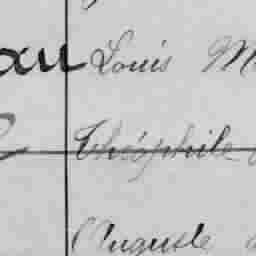 au Louis M
Théophile
Auguste